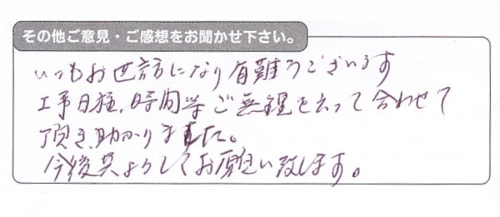 その他ご意見・ご感想をお聞かせ下さい。
いつもお世話になり有難うございます
工事日程、時間等ご無理を云って合わせて
頂き助かりました。
今後共よろしくお願い致します。